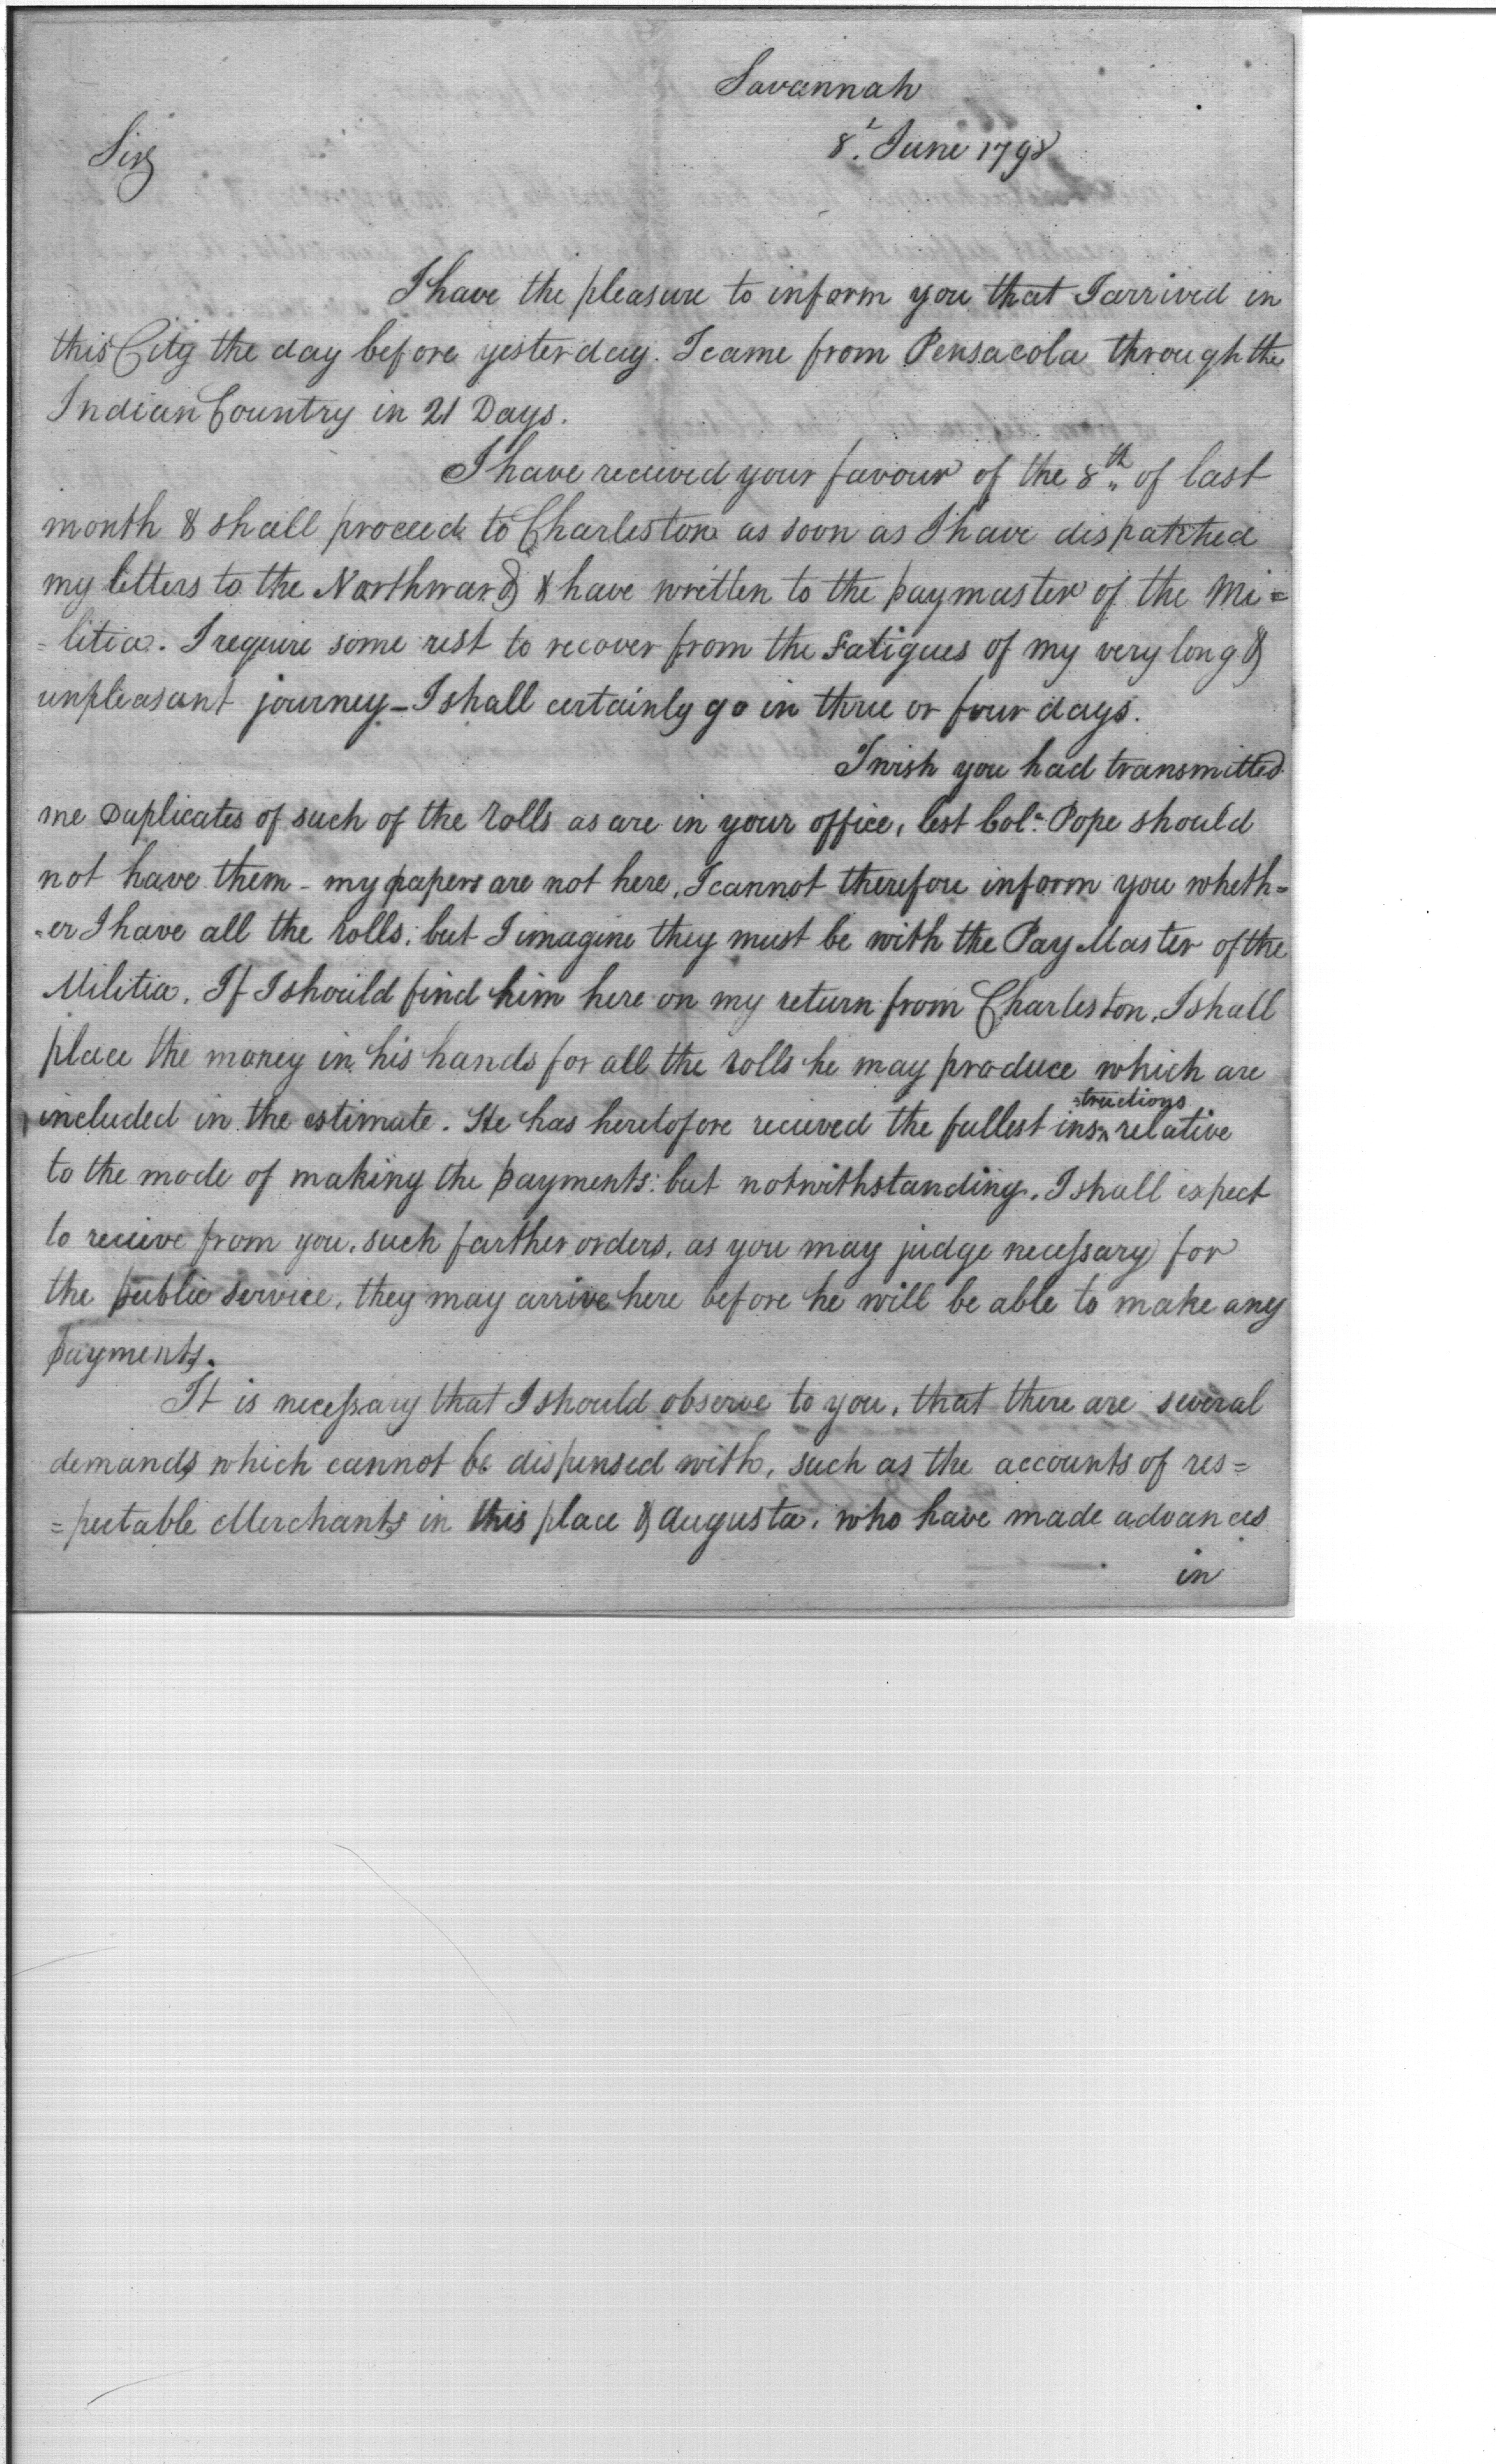 Savannah
8. June 1798
Sir
I have the pleasure to inform you that I arrived in
this City the day before yesterday. I came from Pensacola through the
Indian Country in 21 Days.
I have recieved your favour of the 8th of last
month & shall proceed to Charleston as soon as I have dispatched
my letters to the Northward & have written to the paymaster of the Mi=
=litia. I require some rest to recover from the Fatigues of my very long &
unpleasant journey - I shall certainly go in three or four days.
I wish you had transmitted
me Duplicates of such of the Rolls as are in your office, lest Col. Pope should
not have them - my papers are not here, I cannot therefore inform you wheth=
=er I have all the Rolls; but I imagine they must be with the Pay Master of the
Militia. If I should find him here on my return from Charleston, I shall
place the money in his hands for all the Rolls he may produce which are
included in the estimate. He has heretofore recieved the fullest ins^tructions relative
to the mode of making the payments: but notwithstanding, I shall expect
to recieve from you, such farther orders, as you may judge necessary for
the public service, they may arrive here before he will be able to make any
payments.
It is necessary that I should observe to you, that there are several
demands which cannot be dispensed with, such as the accounts of res=
=pectable Merchants in this place & Augusta, who have made advances
in